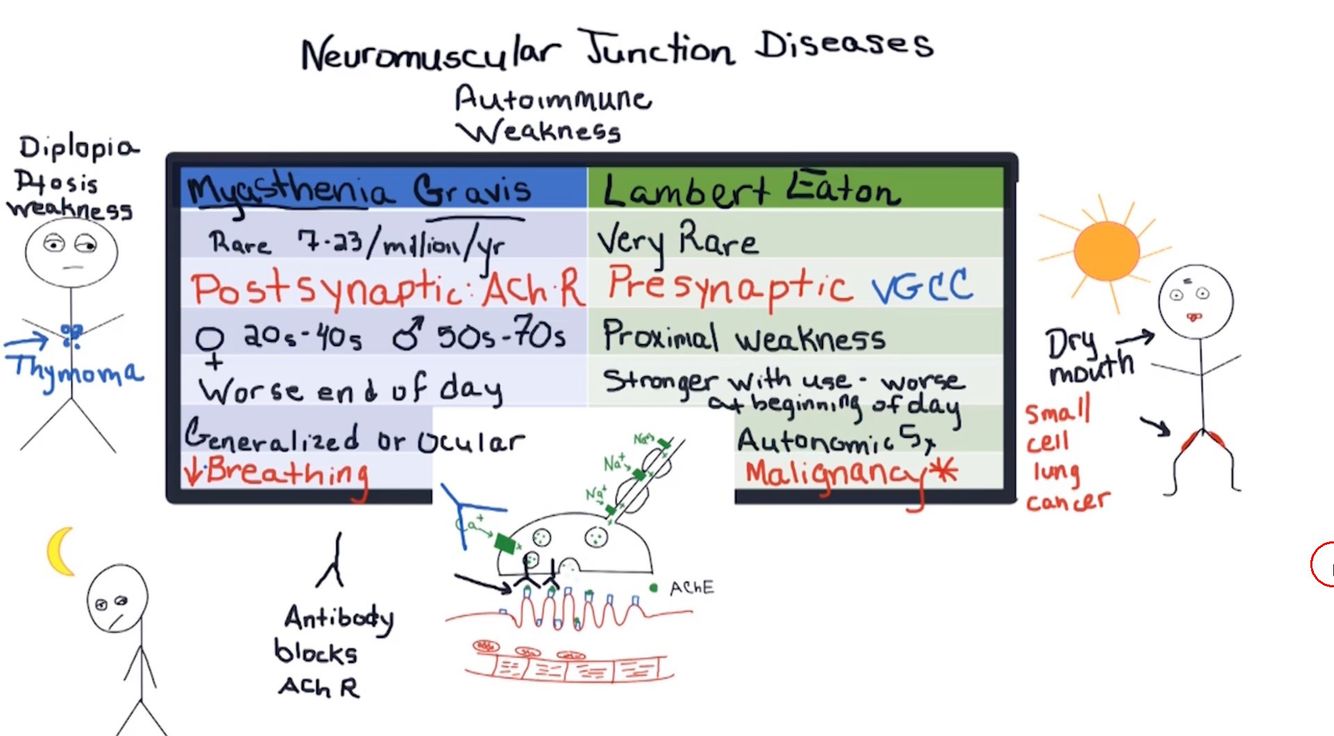 Neuromuscular Junction Diseases
Autoimmune
Weakness
Diplopia
Ptosis
weakness
Thymoma
Myasthenia Gravis
Lambert Eaton
Rare 7-23/million/yr
Very Rare
Postsynaptic: ACh R
Presynaptic VGCC
♀ 20s-40s ♂ 50s-70s
Proximal weakness
Worse end of day
Stronger with use - worse
at beginning of day
Generalized or Ocular
Autonomic Sx
↓ Breathing
Malignancy*
Dry
mouth
Small
cell
lung
cancer
Na+
Na+
Na+
Ca+
AChE
Antibody
blocks
ACh R